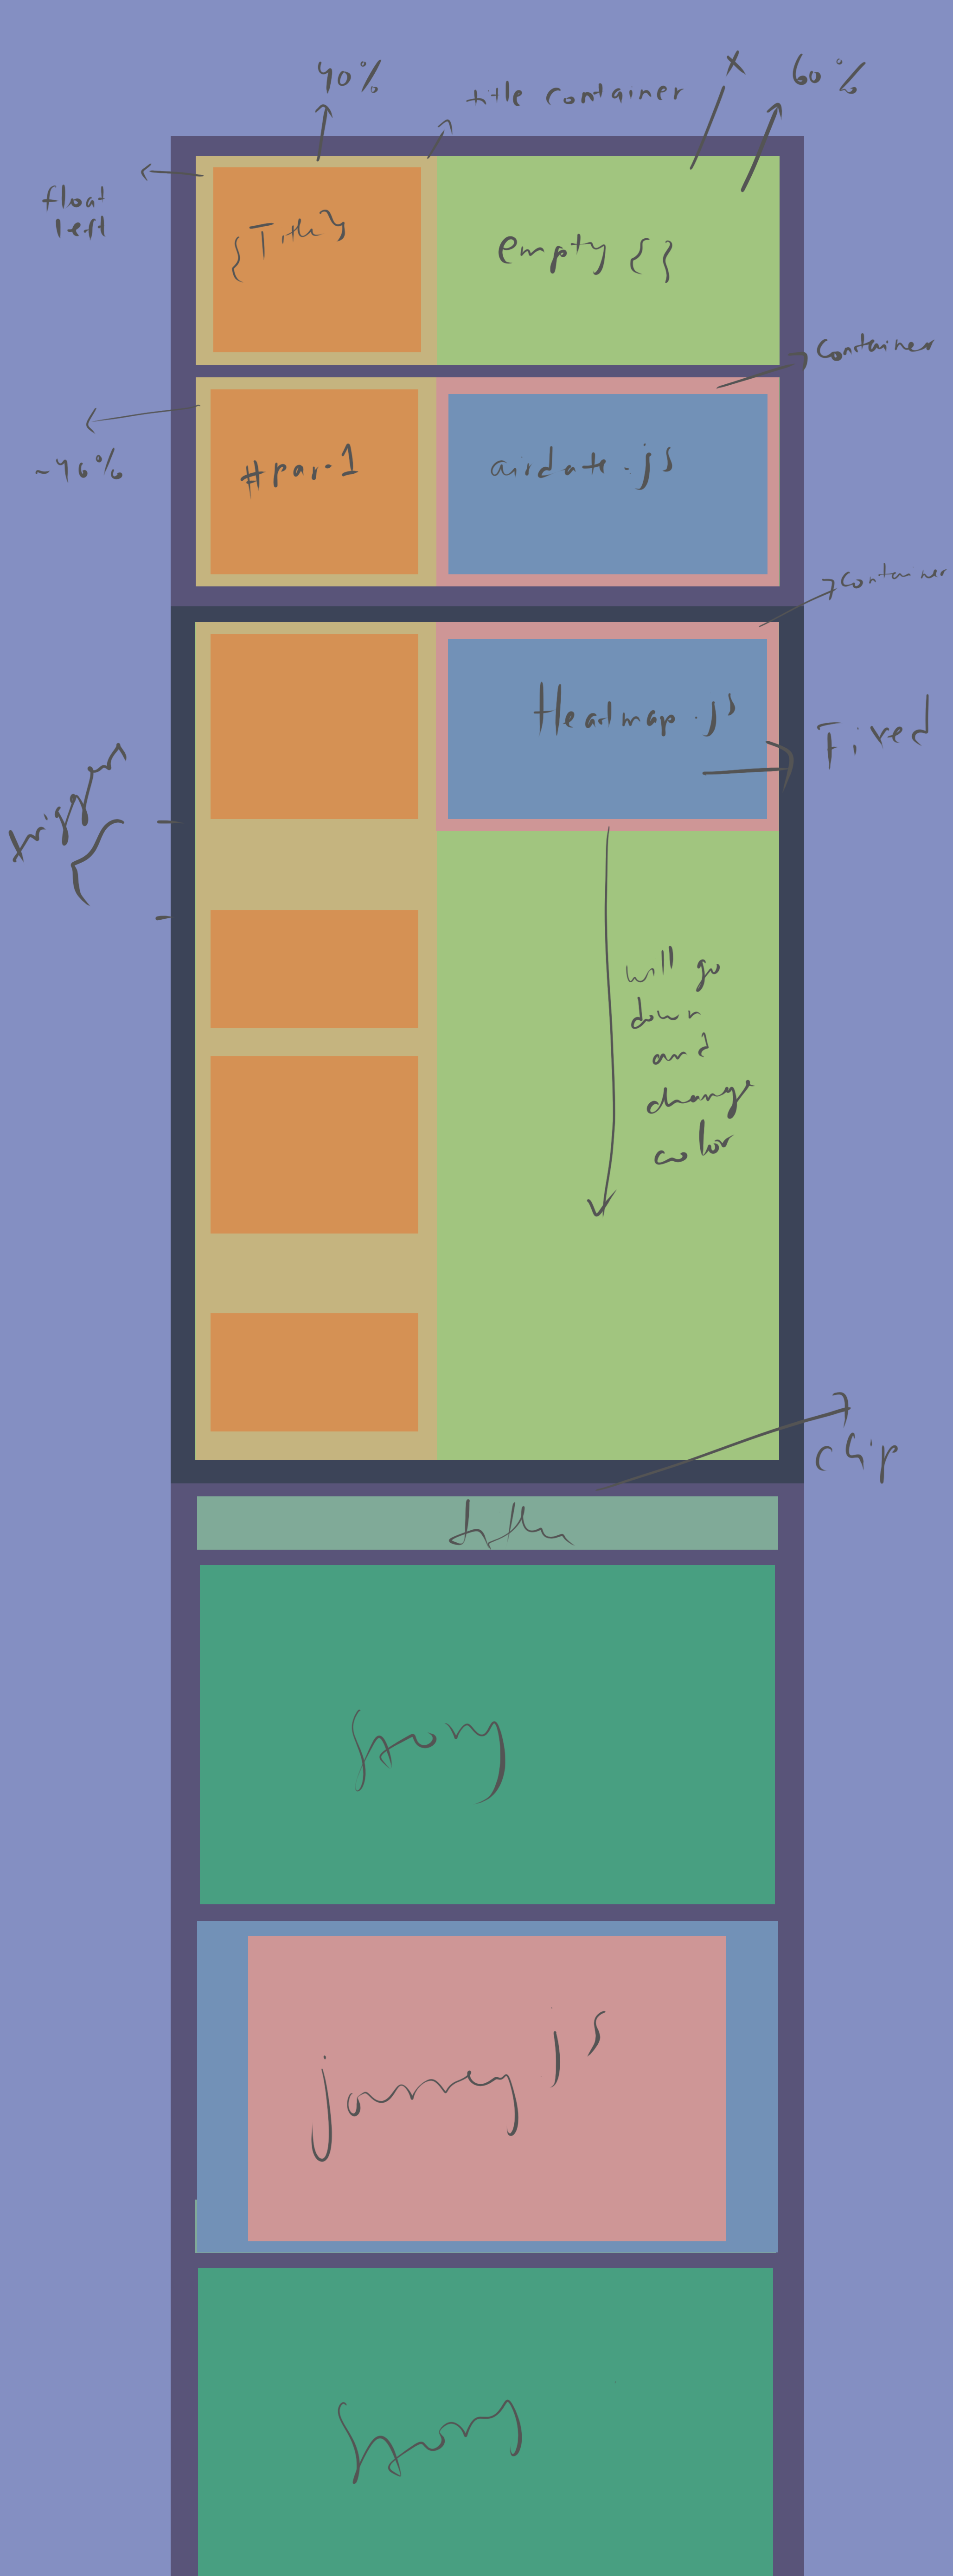 40%
title container
x
60%
float
left
{Title}
empty {}
container
~40%
#par-1
airdate.js
container
Heatmap.js
Fixed
triggers {
will go
down
and
change
color
chip
title
Story
journey js
Story